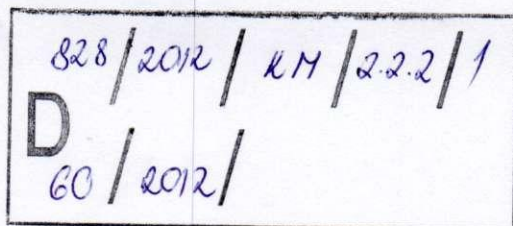 828/2012/KM/2.2.2/1
D
60/2012/